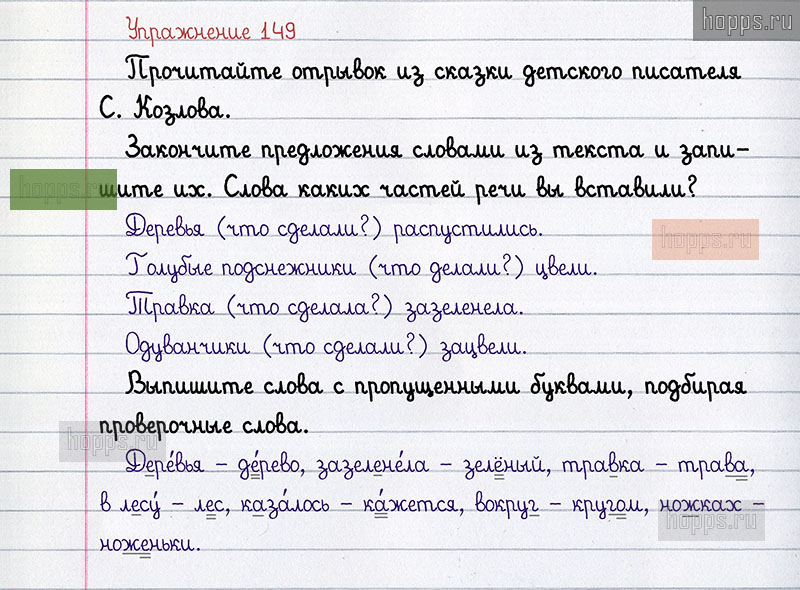 hopps.ru
Упражнение 149
Прочитайте отрывок из сказки детского писателя
С. Козлова.
Закончите предложения словами из текста и запи-
шите их. Слова каких частей речи вы вставили?
hopps.ru
Деревья (что сделали?) распустились.
hopps.ru
Голубые подснежники (что делали?) цвели.
Травка (что сделала?) зазеленела.
Одуванчики (что сделали?) зацвели.
Выпишите слова с пропущенными буквами, подбирая
проверочные слова.
hopps.ru
Дере́вья – де́рево, зазелене́ла – зелёный, травка – трава,
в лесу́ – лес, каза́лось – ка́жется, вокруг – кругом, ножках –
hopps.ru
ноженьки.